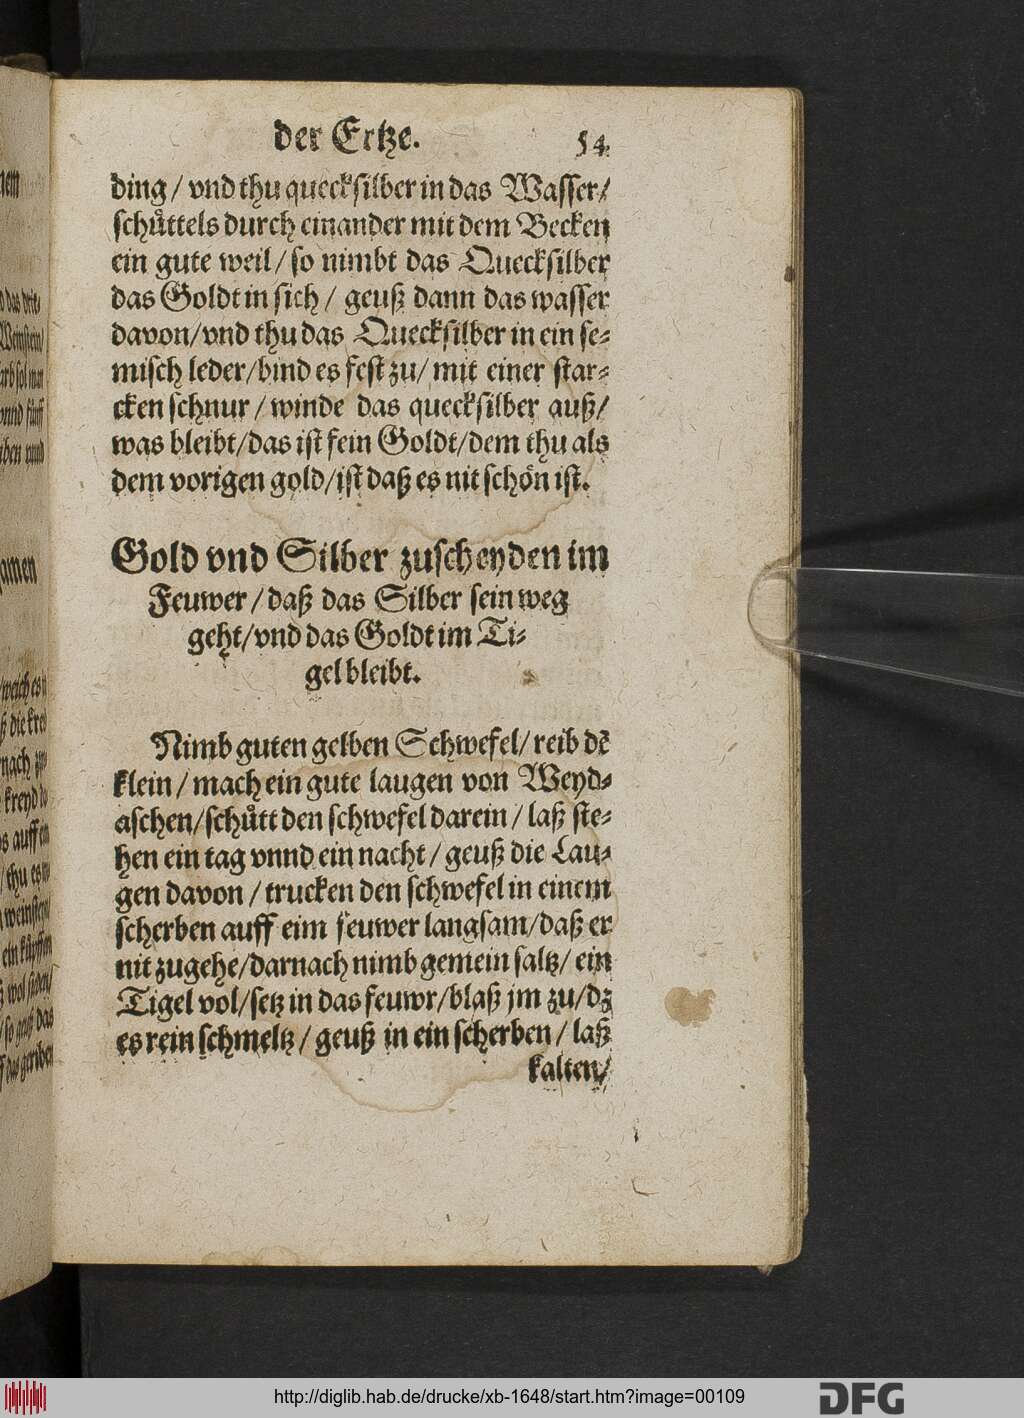 der Ertze. 54.
ding / vnd thu quecksilber in das Wasser/
schuͤttels durch einander mit dem Becken
ein gute weil / so nimbt das Quecksilber
das Goldt in sich / geuß dann das wasser
davon/vnd thu das Quecksilber in ein se-
misch leder/bind es fest zu/ mit einer star-
cken schnur / winde das quecksilber auß/
was bleibt/das ist fein Goldt/dem thu als
dem vorigen gold/ist daß es nit schoͤn ist.
Gold vnd Silber zuscheyden im
Feuwer / daß das Silber sein weg
geht/vnd das Goldt im Ti-
gel bleibt.
Nimb guten gelben Schwefel/ reib dẽ
klein / mach ein gute laugen von Weyd-
aschen/schuͤtt den schwefel darein / laß ste-
hen ein tag vnnd ein nacht / geuß die Lau-
gen davon / trucken den schwefel in einem
scherben auff eim feuwer langsam/daß er
nit zugehe/darnach nimb gemein saltz/ ein
Tigel vol/setz in das feuwr/blaß jm zu/dz
es rein schmeltz / geuß in ein scherben / laß
kalten/
http://diglib.hab.de/drucke/xb-1648/start.htm?image=00109
DFG